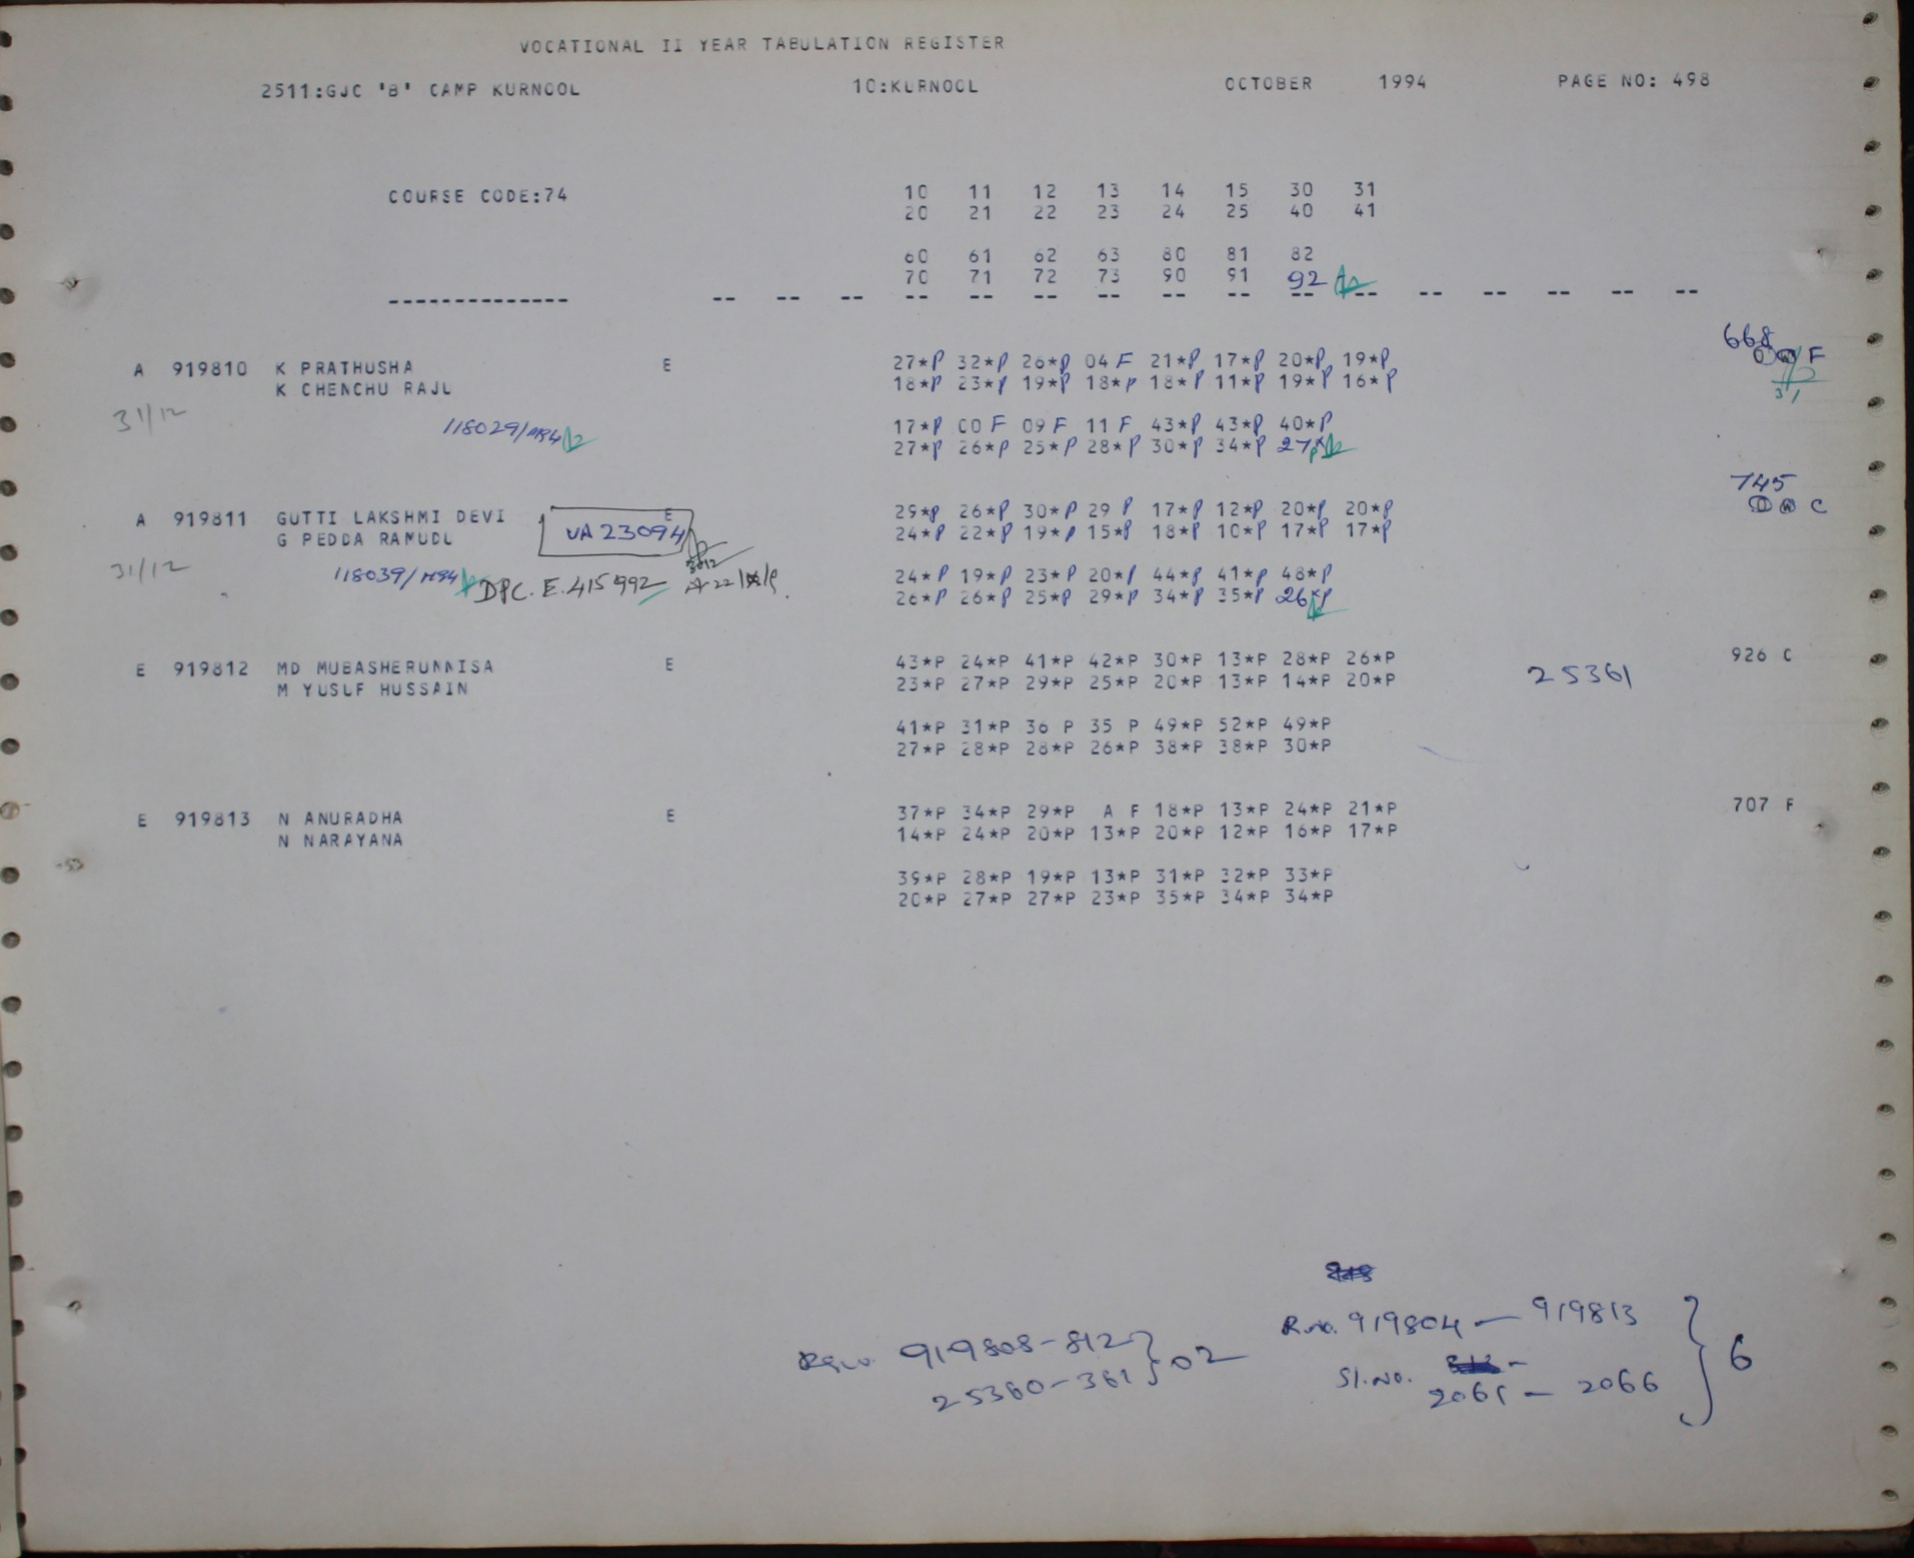 VOCATIONAL II YEAR TABULATION REGISTER
2511:GJC 'B' CAMP KURNOOL 10:KURNOOL OCTOBER 1994 PAGE NO: 498
COURSE CODE:74 10 11 12 13 14 15 30 31
20 21 22 23 24 25 40 41
60 61 62 63 80 81 82
70 71 72 73 90 91 92
-------------- -- -- -- -- -- -- -- -- -- -- -- -- -- -- -- --
668
A 919810 K PRATHUSHA E 27*P 32*P 26*P 04 F 21*P 17*P 20*P 19*P F
K CHENCHU RAJU 18*P 23*P 19*P 18*P 18*P 11*P 19*P 16*P
31/12
118029/M94 17*P 00 F 09 F 11 F 43*P 43*P 40*P
27*P 26*P 25*P 28*P 30*P 34*P 27*P
745
A 919811 GUTTI LAKSHMI DEVI E 29*P 26*P 30*P 29 P 17*P 12*P 20*P 20*P C
G PEDDA RAMUDU VA 23094 24*P 22*P 19*P 15*P 18*P 10*P 17*P 17*P
31/12
118039/M94 24*P 19*P 23*P 20*P 44*P 41*P 48*P
DPC. E. 415992 26*P 26*P 25*P 29*P 34*P 35*P 26*P
E 919812 MD MUBASHERUNNISA E 43*P 24*P 41*P 42*P 30*P 13*P 28*P 26*P 926 C
M YUSUF HUSSAIN 23*P 27*P 29*P 25*P 20*P 13*P 14*P 20*P 25361
41*P 31*P 36 P 35 P 49*P 52*P 49*P
27*P 28*P 28*P 26*P 38*P 38*P 30*P
E 919813 N ANURADHA E 37*P 34*P 29*P A F 18*P 13*P 24*P 21*P 707 F
N NARAYANA 14*P 24*P 20*P 13*P 20*P 12*P 16*P 17*P
39*P 28*P 19*P 13*P 31*P 32*P 33*P
20*P 27*P 27*P 23*P 35*P 34*P 34*P
R.no. 919804 — 919813
919808-812 } 02
Sl.No. 2061 — 2066 } 6
25360-361